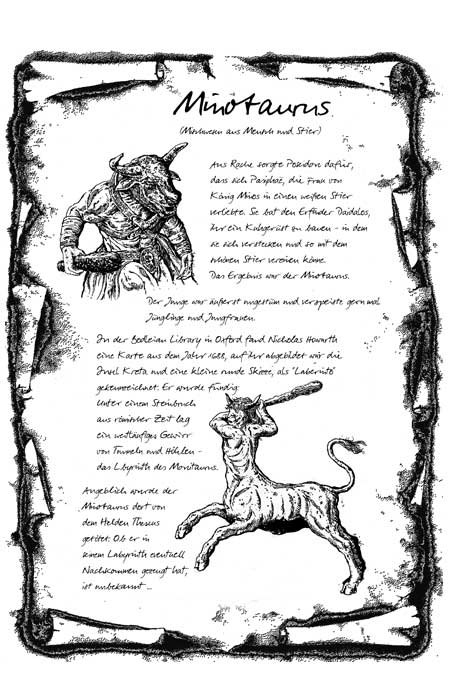 Minotaurus
(Mischwesen aus Mensch und Stier)
Aus Rache sorgte Poseidon dafür,
dass sich Pasiphaë, die Frau von
König Minos in einen weißen Stier
verliebte. Sie bat den Erfinder Daidalos,
ihr ein Kuhgerüst zu bauen - in dem
sie sich verstecken und so mit dem
schönen Stier vereinen könne.
Das Ergebnis war der Minotaurus.
Der Junge war äußerst ungestüm und verspeiste gern mal
Jünglinge und Jungfrauen.
In der Bodleian Library in Oxford fand Nicholas Howarth
eine Karte aus dem Jahr 1688, auf ihr abgebildet war die
Insel Kreta und eine kleine runde Skizze, als "Laberinto"
gekennzeichnet. Er wurde fündig:
Unter einem Steinbruch
aus römischer Zeit lag
ein weitläufiges Gewirr
von Tunneln und Höhlen -
das Lbyrinth des Monitaurus.
Angeblich wurde der
Minotaurus dort von
dem Helden Theseus
getötet. Ob er in
seinem Labyrinth eventuell
Nachkommen gezeugt hat,
ist unbekannt ...